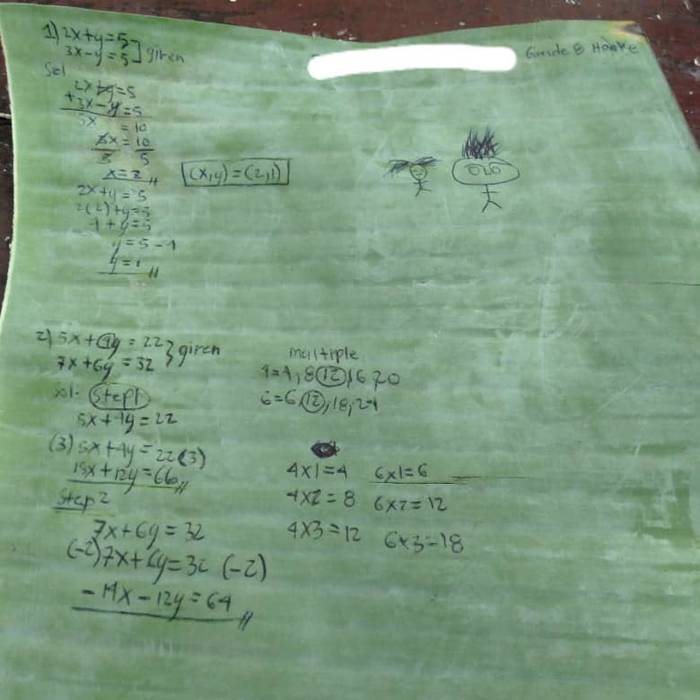 Grade 8 Hooke
1) 2x+y=5
3x-y=5 ] given
Sol
2x+y=5
+3x-y=5
5x = 10
5x = 10
5 5
x=2 //
(x,y)=(2,1)
2x+y=5
2(2)+y=5
4+y=5
y=5-4
y=1 //
2) 5x+4y=22
7x+6y=32 } given
Sol- Step1
5x+4y=22
(3) 5x+4y=22(3)
15x+12y=66 //
Step 2
7x+6y=32
(-2)7x+6y=32 (-2)
-14x-12y=64 //
multiple
4=4,8,12,16,20
6=6,12,18,24
4x1=4 6x1=6
4x2=8 6x2=12
4x3=12 6x3=18